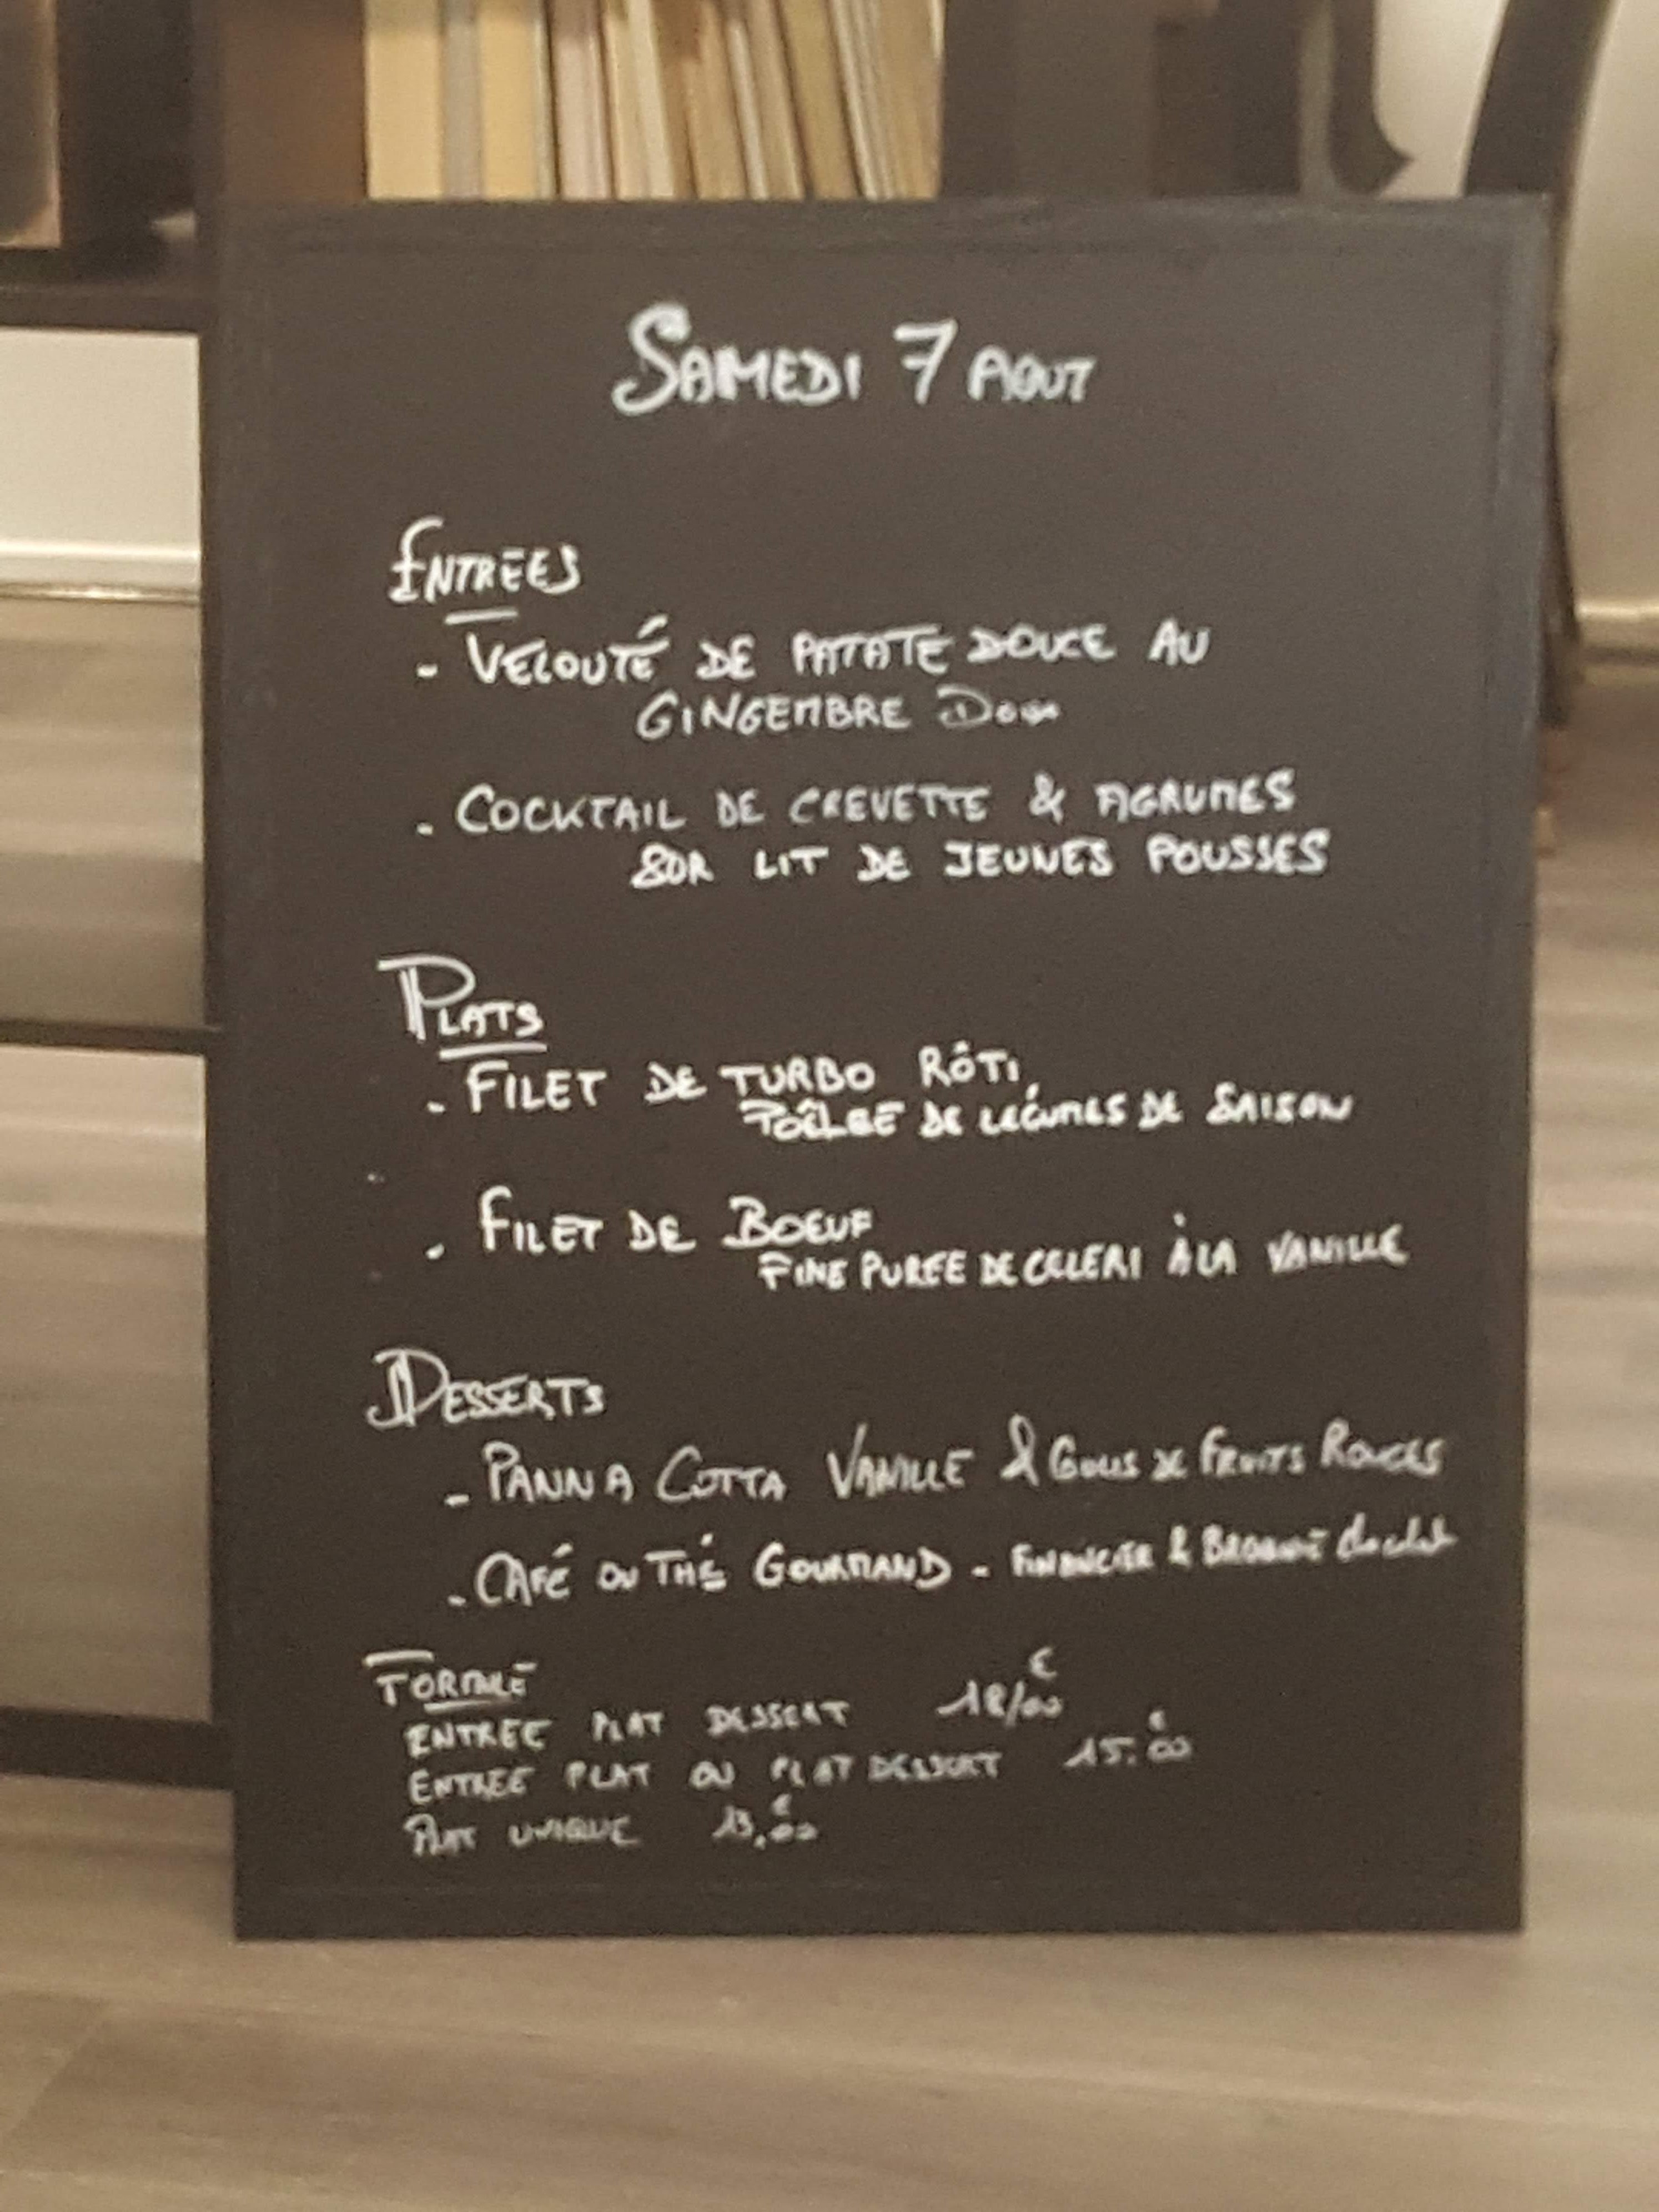 SAMEDI 7 AOUT
ENTREES
- VELOUTÉ DE PATATE DOUCE AU
GINGEMBRE DOUX
- COCKTAIL DE CREVETTE & AGRUMES
SUR LIT DE JEUNES POUSSES
PLATS
- FILET DE TURBO RÔTI,
POÊLEE DE LÉGUMES DE SAISON
- FILET DE BOEUF
FINE PUREE DE CELERI À LA VANILLE
DESSERTS
- PANNA COTTA VANILLE & COULIS DE FRUITS ROUGES
- CAFÉ OU THÉ GOURMAND - FINANCIER & BROWNIE chocolat
FORMULE
ENTREE PLAT DESSERT 18/00 €
ENTREE PLAT OU PLAT DESSERT 15.00 €
PLAT UNIQUE 13,00 €